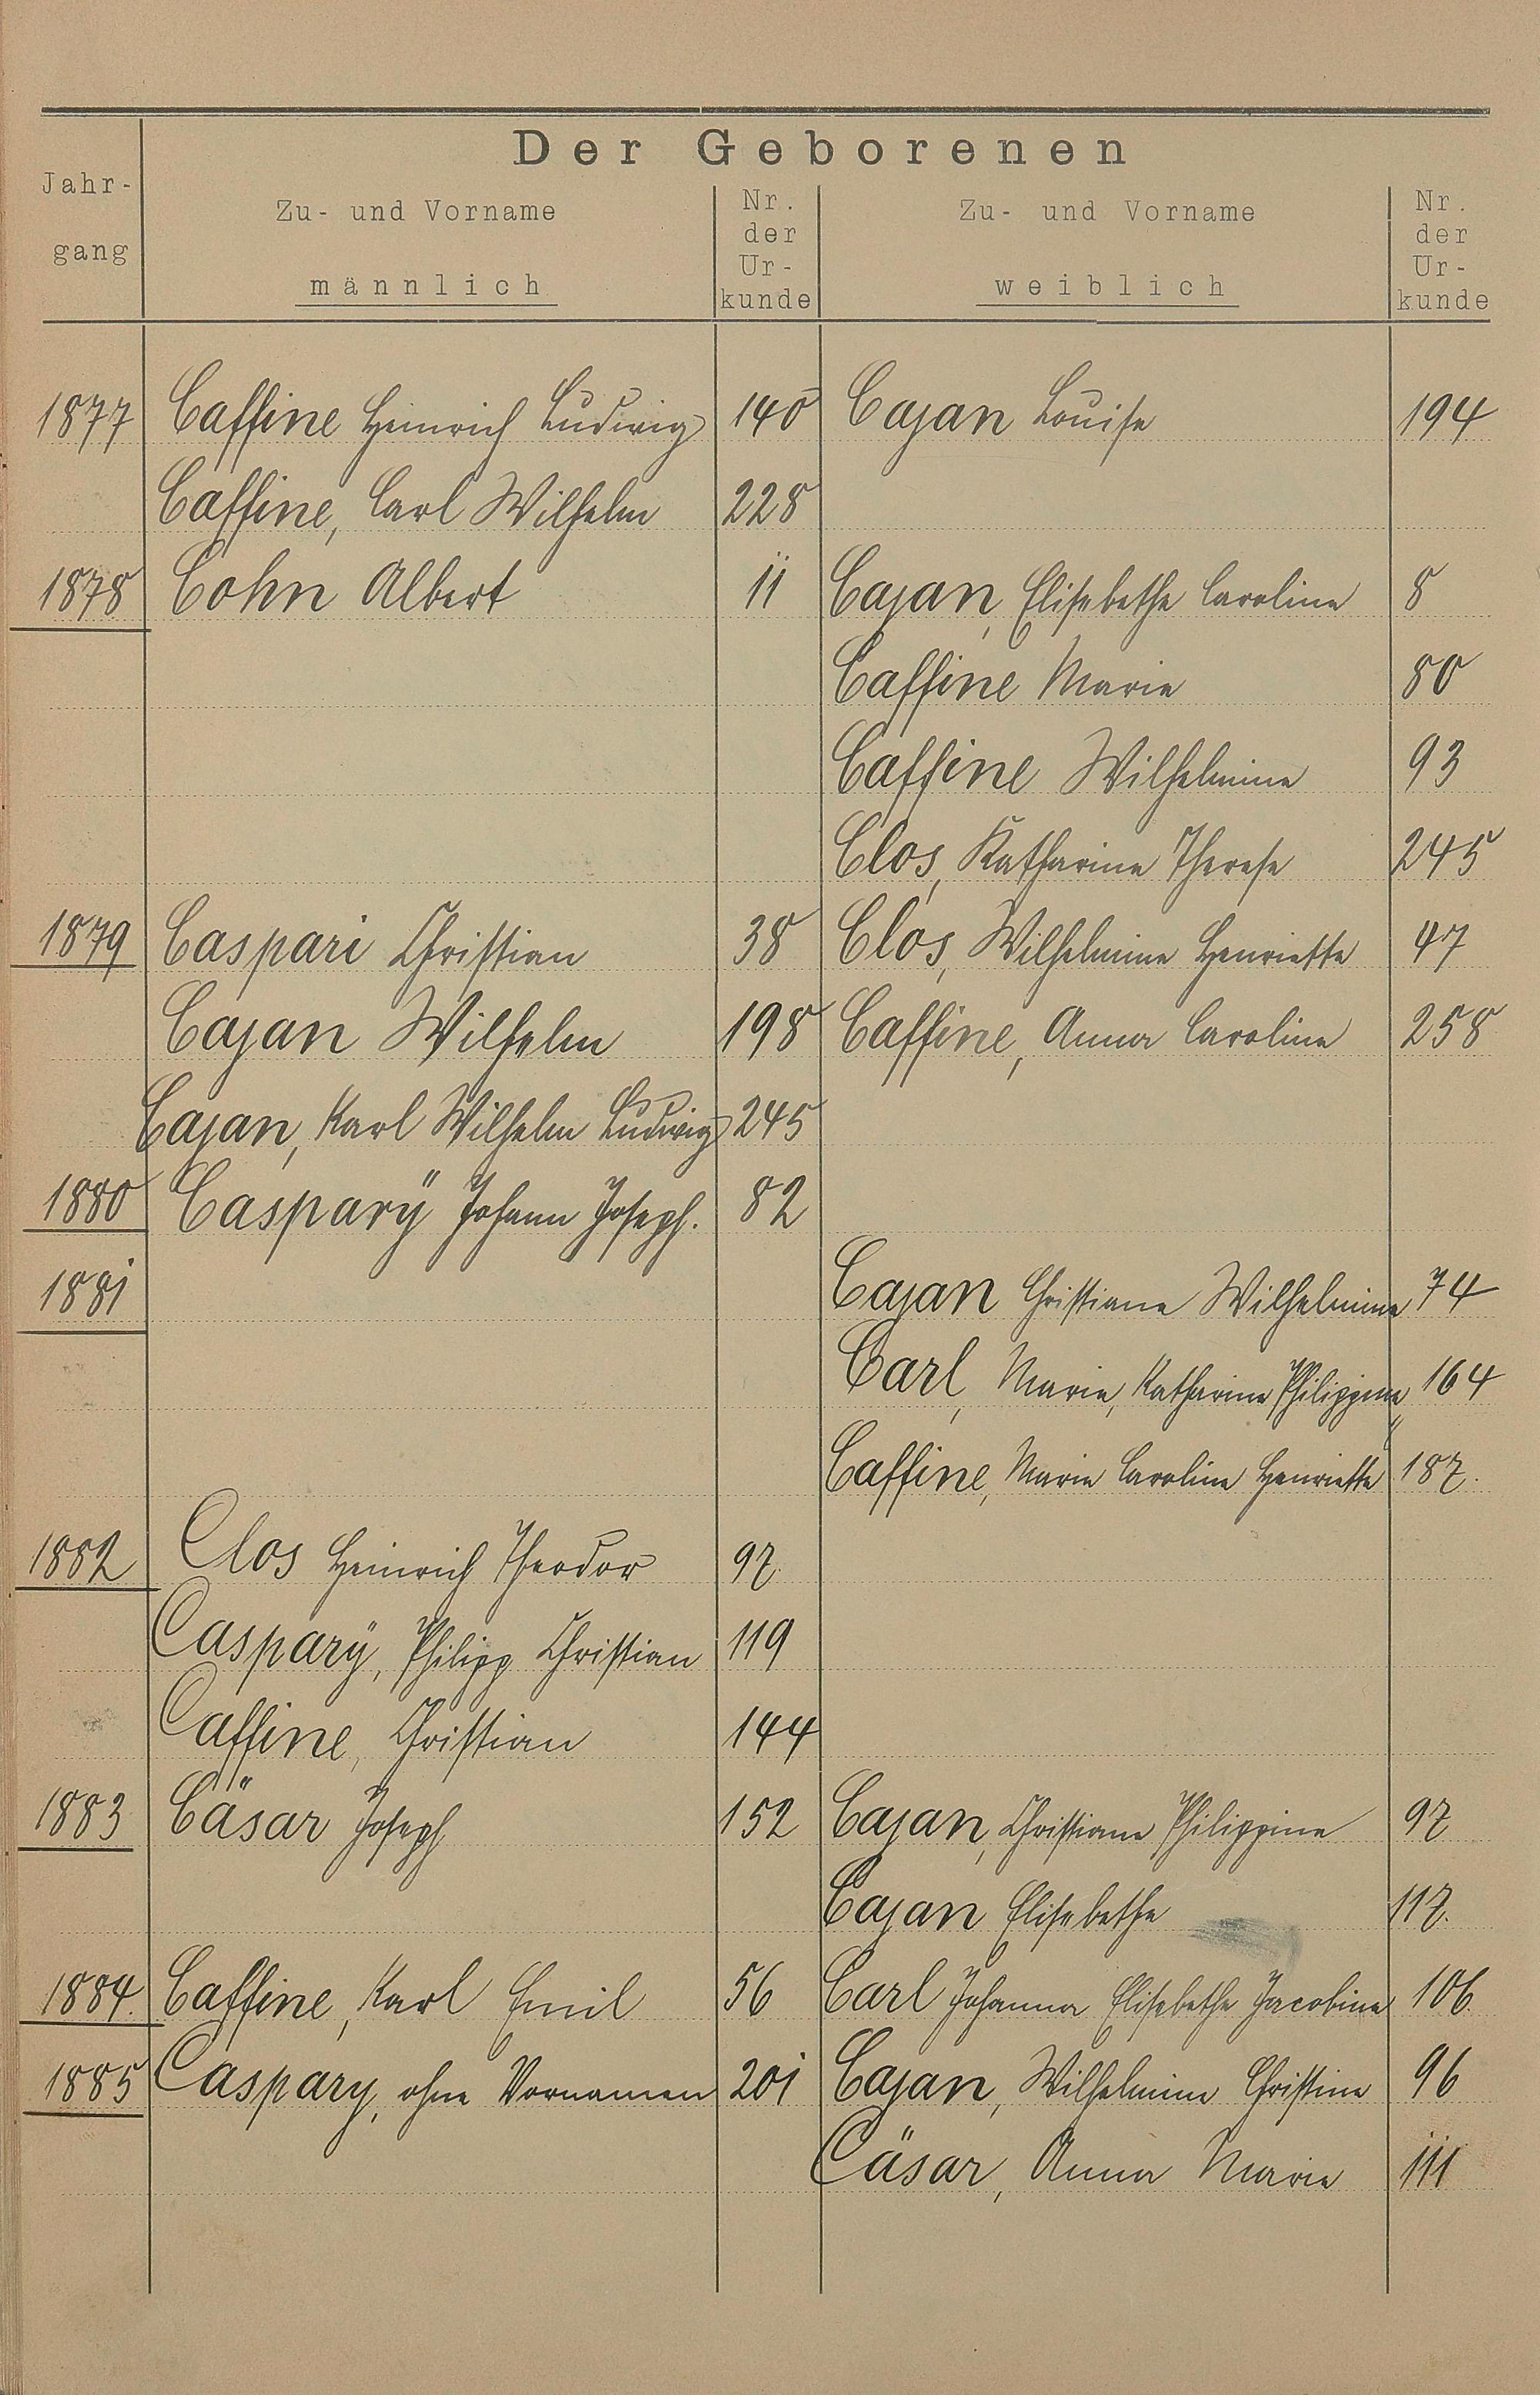 Der Geborenen
Jahr-
gang
Zu- und Vorname
männlich
Nr.
der
Ur-
kunde
Zu- und Vorname
weiblich
Nr.
der
Ur-
kunde
1877 Caffine Heinrich Ludwig 140 Cajan Louise 194
Caffine, Carl Wilhelm 228
1878 Cohn Albert 11 Cajan, Elisabethe Caroline 8
Caffine Marie 80
Caffine Wilhelmine 93
Clos, Katharine Therese 245
1879 Caspari Christian 38 Clos, Wilhelmine Henriette 47
Cajan Wilhelm 198 Caffine, Anna Caroline 258
Cajan, Karl Wilhelm Ludwig 245
1880 Casparÿ Johann Joseph. 82
1881 Cajan Christiane Wilhelmine 74
Carl, Marie, Katharine Philippine 164
Caffine, Marie Caroline Henriette 187.
1882 Clos Heinrich Theodor 97
Casparÿ, Philipp Christian 119
Caffine, Christian 144
1883 Cäsar Joseph 152 Cajan, Christiane Philippine 97
Cajan Elisabethe 117.
1884. Caffine, Karl Emil 56 Carl Johanna Elisabethe Jacobine 106
1885 Caspary, ohne Vornamen 201 Cajan, Wilhelmine Christine 96
Cäsar, Anna Marie 111